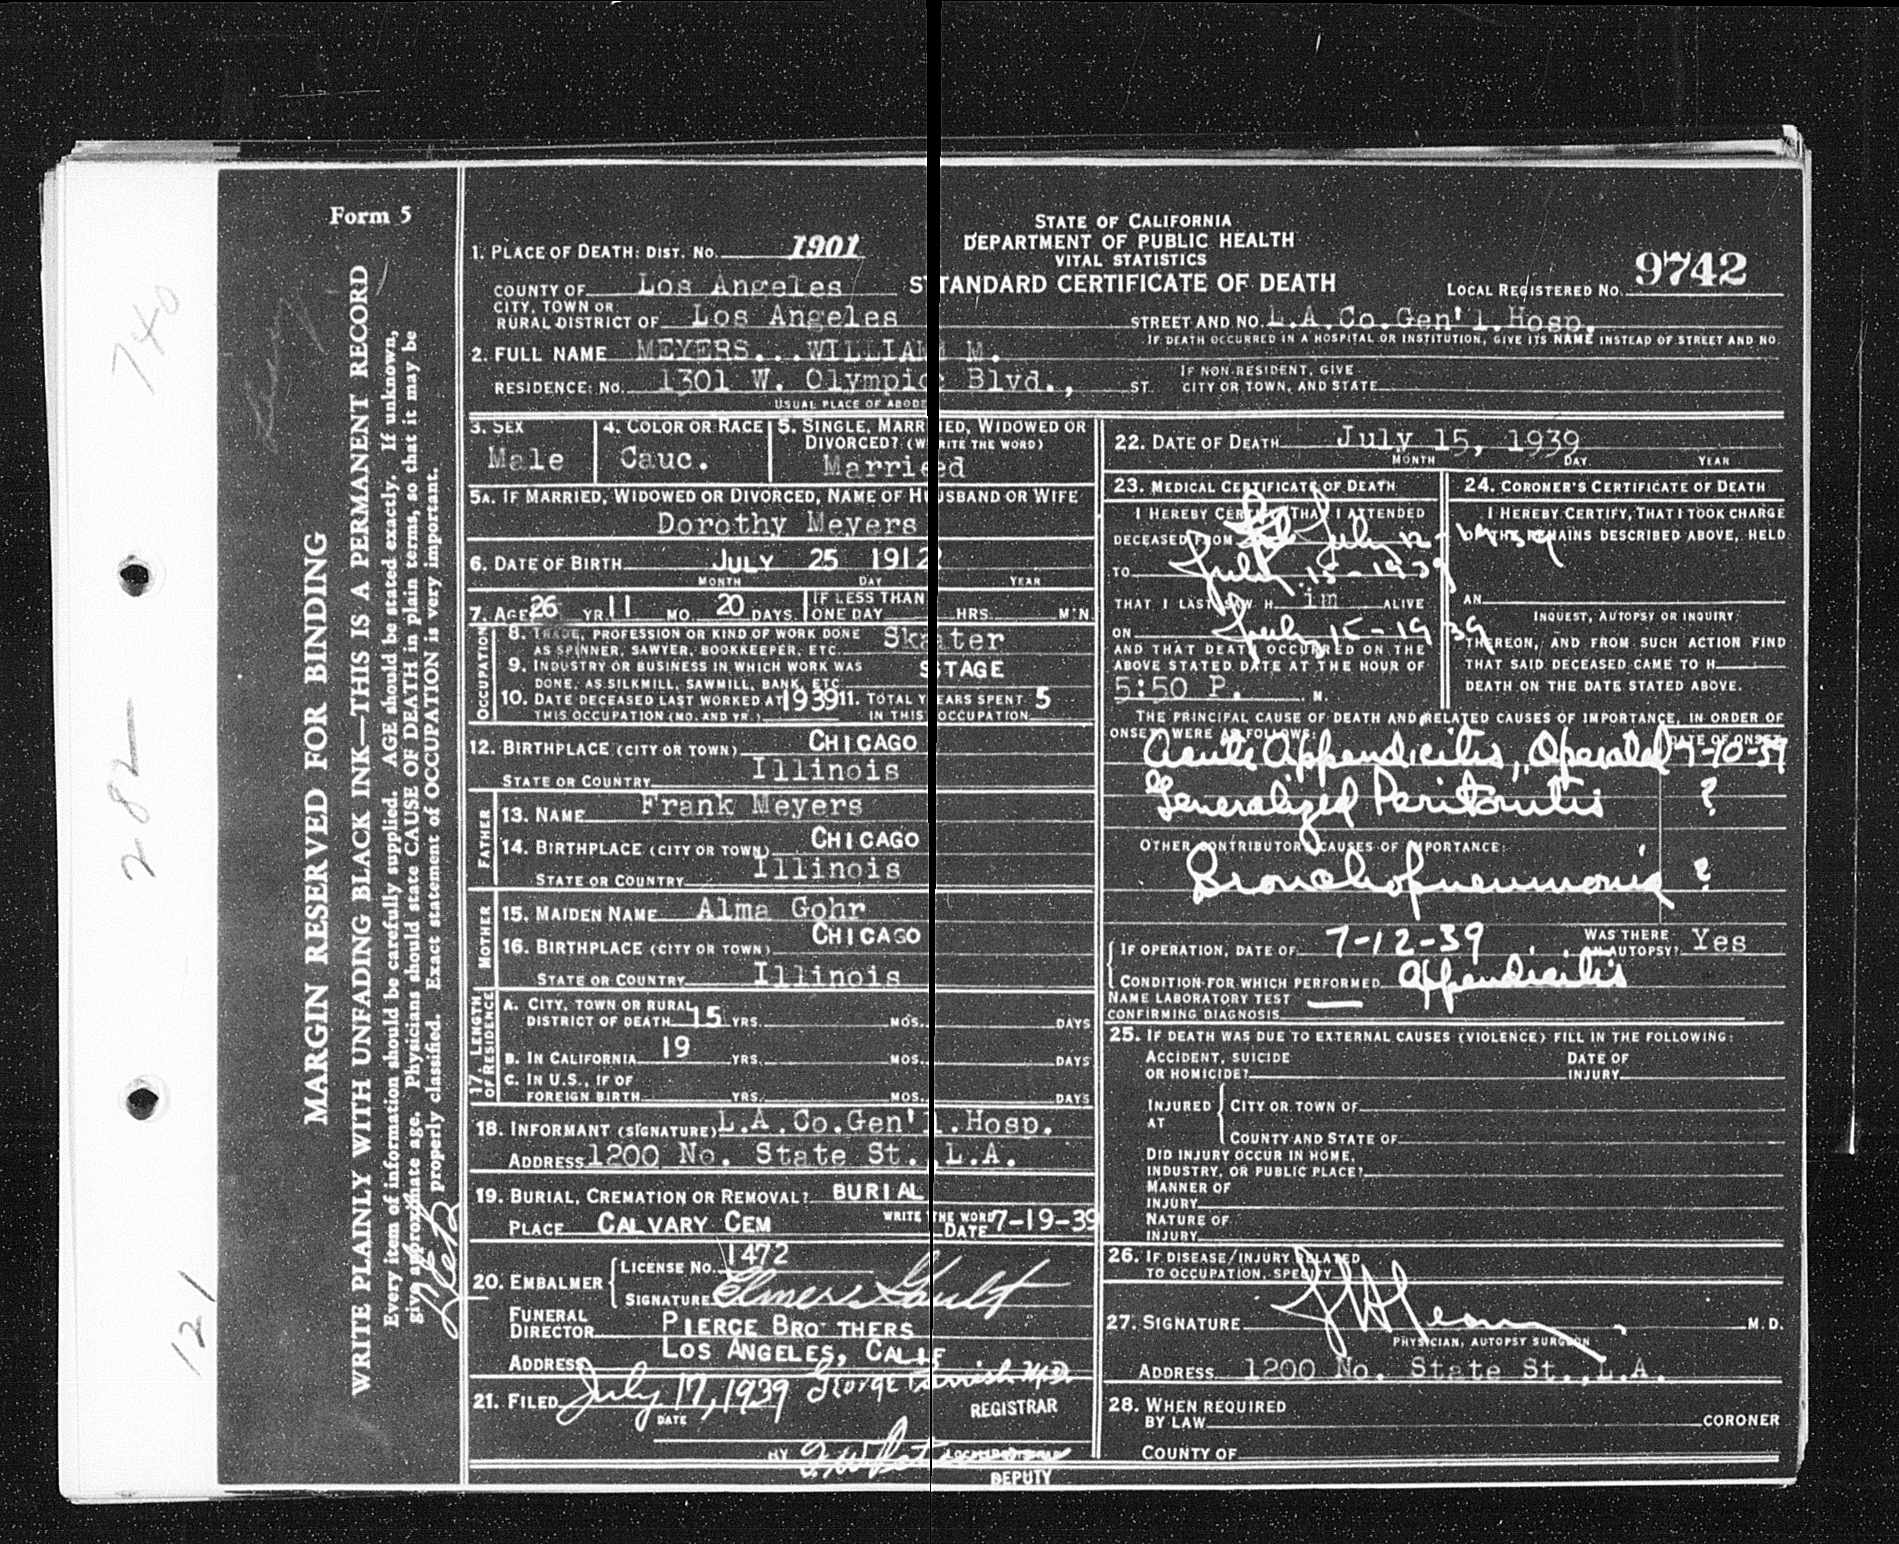 Form 5
MARGIN RESERVED FOR BINDING
WRITE PLAINLY WITH UNFADING BLACK INK—THIS IS A PERMANENT RECORD
Every item of information should be carefully supplied. AGE should be stated exactly. If unknown,
give approximate age. Physicians should state CAUSE OF DEATH in plain terms, so that it may be
properly classified. Exact statement of OCCUPATION is very important.
740
282
121
STATE OF CALIFORNIA
DEPARTMENT OF PUBLIC HEALTH
VITAL STATISTICS
STANDARD CERTIFICATE OF DEATH
LOCAL REGISTERED NO. 9742
1. PLACE OF DEATH: DIST. NO. 1901
COUNTY OF Los Angeles
CITY, TOWN OR
RURAL DISTRICT OF Los Angeles
STREET AND NO. L.A.Co.Gen'l.Hosp.
IF DEATH OCCURRED IN A HOSPITAL OR INSTITUTION, GIVE ITS NAME INSTEAD OF STREET AND NO.
2. FULL NAME MEYERS...WILLIAM M.
RESIDENCE: NO. 1301 W. Olympic Blvd., ST.
IF NON-RESIDENT, GIVE
CITY OR TOWN, AND STATE
USUAL PLACE OF ABODE
3. SEX Male
4. COLOR OR RACE Cauc.
5. SINGLE, MARRIED, WIDOWED OR
DIVORCED? (WRITE THE WORD)
Married
5A. IF MARRIED, WIDOWED OR DIVORCED, NAME OF HUSBAND OR WIFE
Dorothy Meyers
6. DATE OF BIRTH JULY 25 1912
MONTH DAY YEAR
7. AGE 26 YR. 11 MO. 20 DAYS. IF LESS THAN
ONE DAY HRS. MIN.
OCCUPATION
8. TRADE, PROFESSION OR KIND OF WORK DONE
AS SPINNER, SAWYER, BOOKKEEPER, ETC. Skater
9. INDUSTRY OR BUSINESS IN WHICH WORK WAS
DONE, AS SILKMILL, SAWMILL, BANK, ETC. STAGE
10. DATE DECEASED LAST WORKED AT 1939 11. TOTAL YEARS SPENT 5
THIS OCCUPATION (MO. AND YR.) IN THIS OCCUPATION
12. BIRTHPLACE (CITY OR TOWN) CHICAGO
STATE OR COUNTRY Illinois
FATHER
13. NAME Frank Meyers
14. BIRTHPLACE (CITY OR TOWN) CHICAGO
STATE OR COUNTRY Illinois
MOTHER
15. MAIDEN NAME Alma Gohr
16. BIRTHPLACE (CITY OR TOWN) CHICAGO
STATE OR COUNTRY Illinois
17. LENGTH
OF RESIDENCE
A. CITY, TOWN OR RURAL
DISTRICT OF DEATH 15 YRS. MOS. DAYS
B. IN CALIFORNIA 19 YRS. MOS. DAYS
C. IN U.S., IF OF
FOREIGN BIRTH YRS. MOS. DAYS
18. INFORMANT (SIGNATURE) L.A.Co.Gen'l.Hosp.
ADDRESS 1200 No. State St., L.A.
19. BURIAL, CREMATION OR REMOVAL? BURIAL
WRITE THE WORD
PLACE CALVARY CEM DATE 7-19-39
20. EMBALMER
LICENSE NO. 1472
SIGNATURE Elmer Gault
FUNERAL
DIRECTOR PIERCE BROTHERS
ADDRESS LOS ANGELES, CALIF
21. FILED July 17, 1939 George Parrish M.D.
DATE REGISTRAR
BY
DEPUTY
22. DATE OF DEATH July 15, 1939
MONTH DAY YEAR
23. MEDICAL CERTIFICATE OF DEATH
I HEREBY CERTIFY, THAT I ATTENDED
DECEASED FROM July 12-1939
TO July 15-1939
THAT I LAST SAW H im ALIVE
ON July 15-1939
AND THAT DEATH OCCURRED ON THE
ABOVE STATED DATE AT THE HOUR OF
5:50 P. M.
24. CORONER'S CERTIFICATE OF DEATH
I HEREBY CERTIFY, THAT I TOOK CHARGE
OF THE REMAINS DESCRIBED ABOVE, HELD
AN
INQUEST, AUTOPSY OR INQUIRY
THEREON, AND FROM SUCH ACTION FIND
THAT SAID DECEASED CAME TO H
DEATH ON THE DATE STATED ABOVE.
THE PRINCIPAL CAUSE OF DEATH AND RELATED CAUSES OF IMPORTANCE, IN ORDER OF
ONSET, WERE AS FOLLOWS: DATE OF ONSET
Acute Appendicitis, Operated 7-10-39
Generalized Peritonitis ?
OTHER CONTRIBUTORY CAUSES OF IMPORTANCE:
Bronchopneumonia ?
IF OPERATION, DATE OF 7-12-39 WAS THERE
AN AUTOPSY? Yes
CONDITION FOR WHICH PERFORMED Appendicitis
NAME LABORATORY TEST —
CONFIRMING DIAGNOSIS
25. IF DEATH WAS DUE TO EXTERNAL CAUSES (VIOLENCE) FILL IN THE FOLLOWING:
ACCIDENT, SUICIDE
OR HOMICIDE? DATE OF
INJURY
INJURED
AT
CITY OR TOWN OF
COUNTY AND STATE OF
DID INJURY OCCUR IN HOME,
INDUSTRY, OR PUBLIC PLACE?
MANNER OF
INJURY
NATURE OF
INJURY
26. IF DISEASE/INJURY RELATED
TO OCCUPATION, SPECIFY
27. SIGNATURE M.D.
PHYSICIAN, AUTOPSY SURGEON
ADDRESS 1200 No. State St., L.A.
28. WHEN REQUIRED
BY LAW CORONER
COUNTY OF